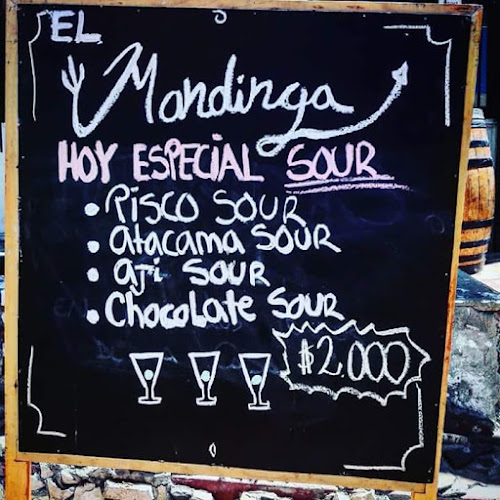 EL
Mondinga
HOY ESPECIAL SOUR
• PISCO SOUR
• atacama SOUR
• aji SOUR
• Chocolate SOUR
$2.000